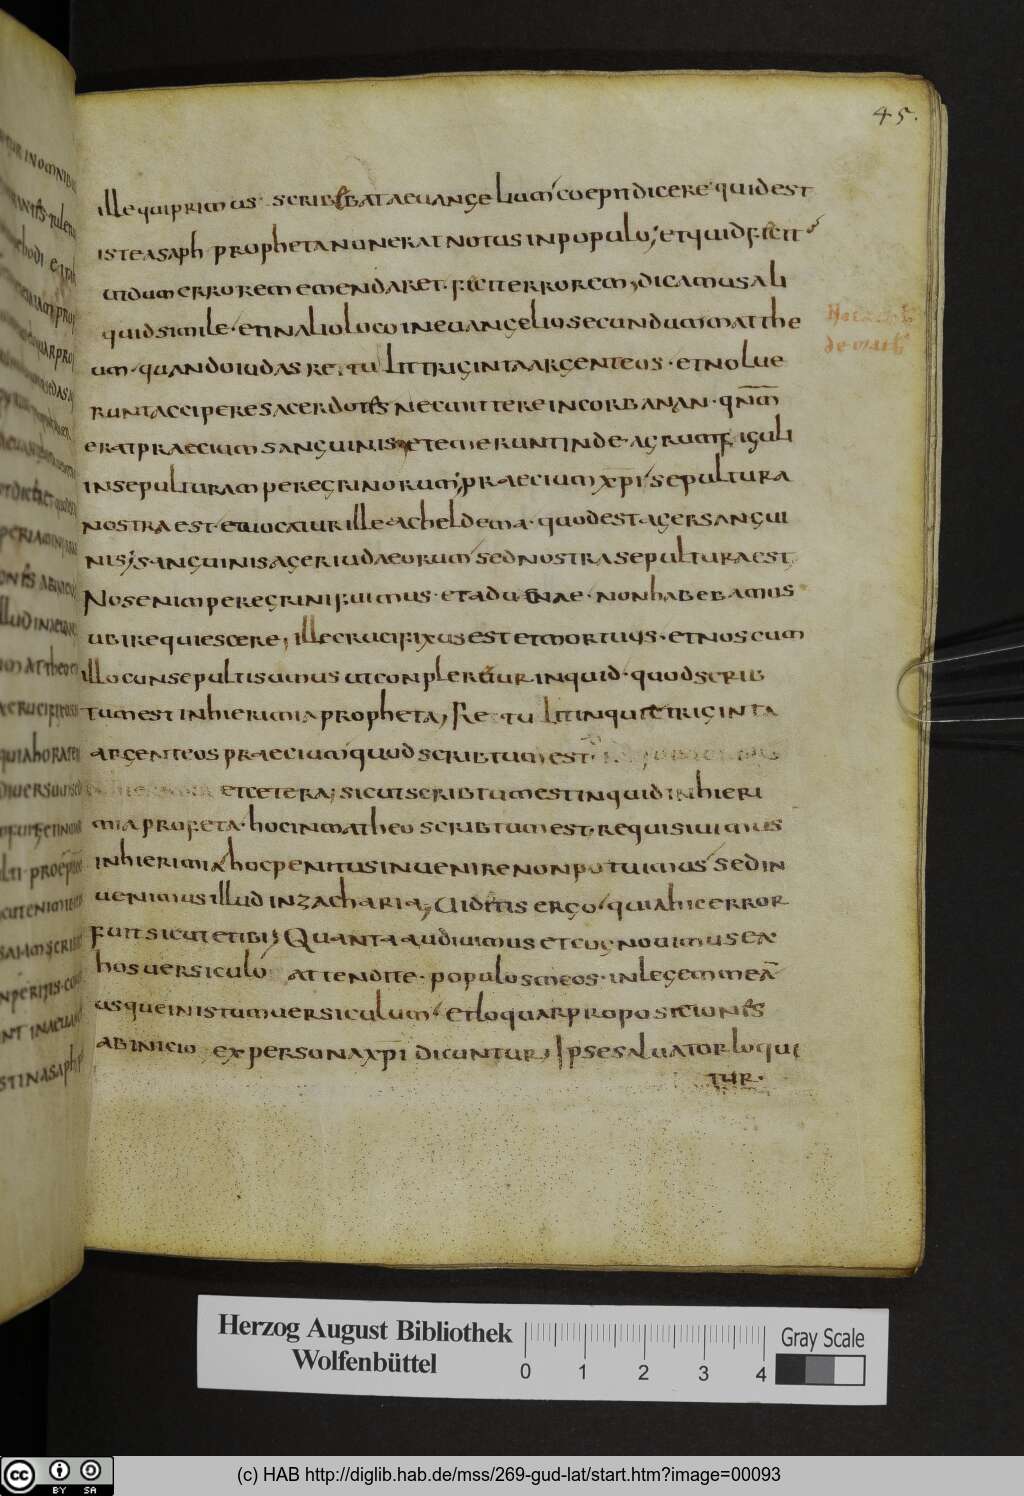 45.
ille qui primus scribebat aeuangelium coepit dicere quid est
iste asaph propheta non erat notus in populo; et quid fecit
ut dum errorem emendaret. fecit errorem, dicamus ali
quid simile. et in alio loco in euangelio secundum matthe
um. quando iudas retulit triginta argenteos. et nolue
runt accipere sacerdotes nec mittere in corbanan. qn̄m̄
erat praecium sanguinis et emerunt inde. agrum figuli
in sepulturam peregrinorum; praecium xp̄i sepultura
nostra est. et uocatur ille acheldema. quod est. ager sangui
nis; sanguinis ager iudaeorum sed nostra sepultura est;
Nos enim peregrini fuimus. et aduenae. non habebamus
ubi requiescere, ille crucifixus est et mortuus. et nos cum
illo consepulti sumus ut conpleretur inquid. quod scrib
tum est in hierimia propheta, Retulit inquit et triginta
argenteos praecium quod scribtum est.
et cetera; sicut scribtum est inquid in hieri
mia profeta. hoc in matheo scribtum est. requisiuimus
in hierimia hoc penitus inuenire non potuimus sed in
uenimus illud in zacharia, Uidetis ergo quia hic error
fuit sicut et ibi; Quanta audiuimus et cognouimus ea.
hos uersiculo attendite. populus meos. in legem meā
usque in istum uersiculum. et loquar propositiones
ab inicio ex persona xp̄i dicuntur, Ipse saluator loqui
tur.
Herzog August Bibliothek
Wolfenbüttel
0 1 2 3 4
Gray Scale
cc BY SA
(c) HAB http://diglib.hab.de/mss/269-gud-lat/start.htm?image=00093